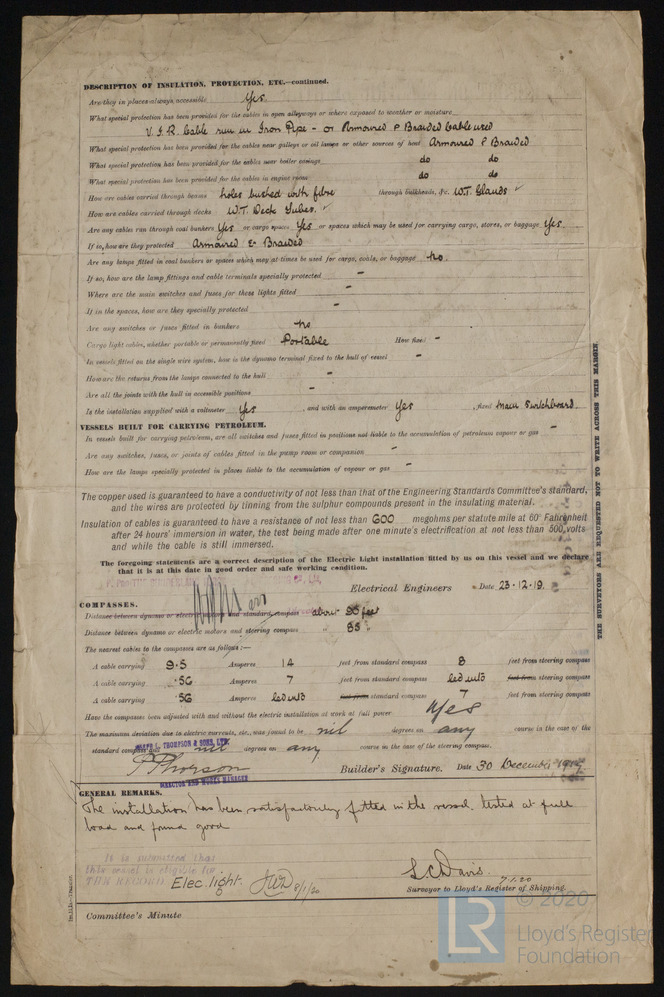 DESCRIPTION OF INSULATION, PROTECTION, ETC.—continued.
Are they in places always accessible Yes
What special protection has been provided for the cables in open alleyways or where exposed to weather or moisture
V.I.R. Cable run in Iron Pipe - or Armoured & Braided Cable used
What special protection has been provided for the cables near galleys or oil lamps or other sources of heat Armoured & Braided
What special protection has been provided for the cables near boiler casings do do
What special protection has been provided for the cables in engine room do do
How are cables carried through beams holes bushed with fibre through bulkheads, &c. W.T. Glands ✓
How are cables carried through decks W.T. Deck Tubes. ✓
Are any cables run through coal bunkers Yes or cargo spaces Yes or spaces which may be used for carrying cargo, stores, or baggage Yes
If so, how are they protected Armoured & Braided
Are any lamps fitted in coal bunkers or spaces which may at times be used for cargo, coals, or baggage No.
If so, how are the lamp fittings and cable terminals specially protected -
Where are the main switches and fuses for these lights fitted -
If in the spaces, how are they specially protected -
Are any switches or fuses fitted in bunkers No
Cargo light cables, whether portable or permanently fixed Portable How fixed -
In vessels fitted on the single wire system, how is the dynamo terminal fixed to the hull of vessel -
How are the returns from the lamps connected to the hull -
Are all the joints with the hull in accessible positions -
Is the installation supplied with a voltmeter Yes , and with an amperemeter Yes , fixed Main Switchboard
VESSELS BUILT FOR CARRYING PETROLEUM.
In vessels built for carrying petroleum, are all switches and fuses fitted in positions not liable to the accumulation of petroleum vapour or gas -
Are any switches, fuses, or joints of cables fitted in the pump room or companion -
How are the lamps specially protected in places liable to the accumulation of vapour or gas -
The copper used is guaranteed to have a conductivity of not less than that of the Engineering Standards Committee's standard,
and the wires are protected by tinning from the sulphur compounds present in the insulating material.
Insulation of cables is guaranteed to have a resistance of not less than 600 megohms per statute mile at 60° Fahrenheit
after 24 hours' immersion in water, the test being made after one minute's electrification at not less than 500 volts
and while the cable is still immersed.
The foregoing statements are a correct description of the Electric Light installation fitted by us on this vessel and we declare
that it is at this date in good order and safe working condition.
Electrical Engineers Date 23.12.19.
COMPASSES.
Distance between dynamo or electric motors and standard compass about feet
Distance between dynamo or electric motors and steering compass " 85 "
The nearest cables to the compasses are as follows:—
A cable carrying 9.5 Amperes 14 feet from standard compass 8 feet from steering compass
A cable carrying .56 Amperes 7 feet from standard compass led into feet from steering compass
A cable carrying .56 Amperes led into feet from standard compass 7 feet from steering compass
Have the compasses been adjusted with and without the electric installation at work at full power Yes
The maximum deviation due to electric currents, etc., was found to be nil degrees on any course in the case of the
standard compass and nil degrees on any course in the case of the steering compass.
THOMPSON & SONS, LTD.
DIRECTOR AND WORKS MANAGER
Builder's Signature. Date 30 December 1919
GENERAL REMARKS.
The installation has been satisfactorily fitted in the vessel, tested at full
load and found good
It is submitted that
this vessel is eligible for
THE RECORD. Elec. light. JWD 8/1/20
L C Davis. 7.1.20
Surveyor to Lloyd's Register of Shipping.
Committee's Minute
THE SURVEYORS ARE REQUESTED NOT TO WRITE ACROSS THIS MARGIN.
© 2020
LR
Lloyd's Register
Foundation